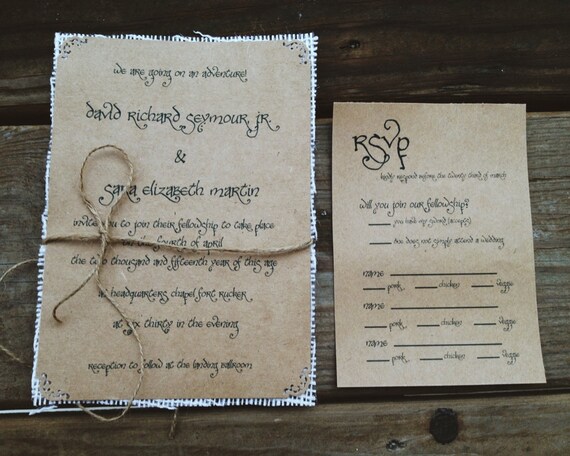 we are going on an adventure!
david richard seymour, jr.
&
sara elizabeth martin
invite you to join their fellowship to take place
fourth of april
the two thousand and fifteenth year of this age
at headquarters chapel fort rucker
at six thirty in the evening
reception to follow at the landing ballroom
RSVP
kindly respond before the twenty third of march
will you join our fellowship?
you have my sword (accepts)
one does not simply attend a wedding
name
pork chicken veggie
name
pork chicken veggie
name
pork chicken veggie